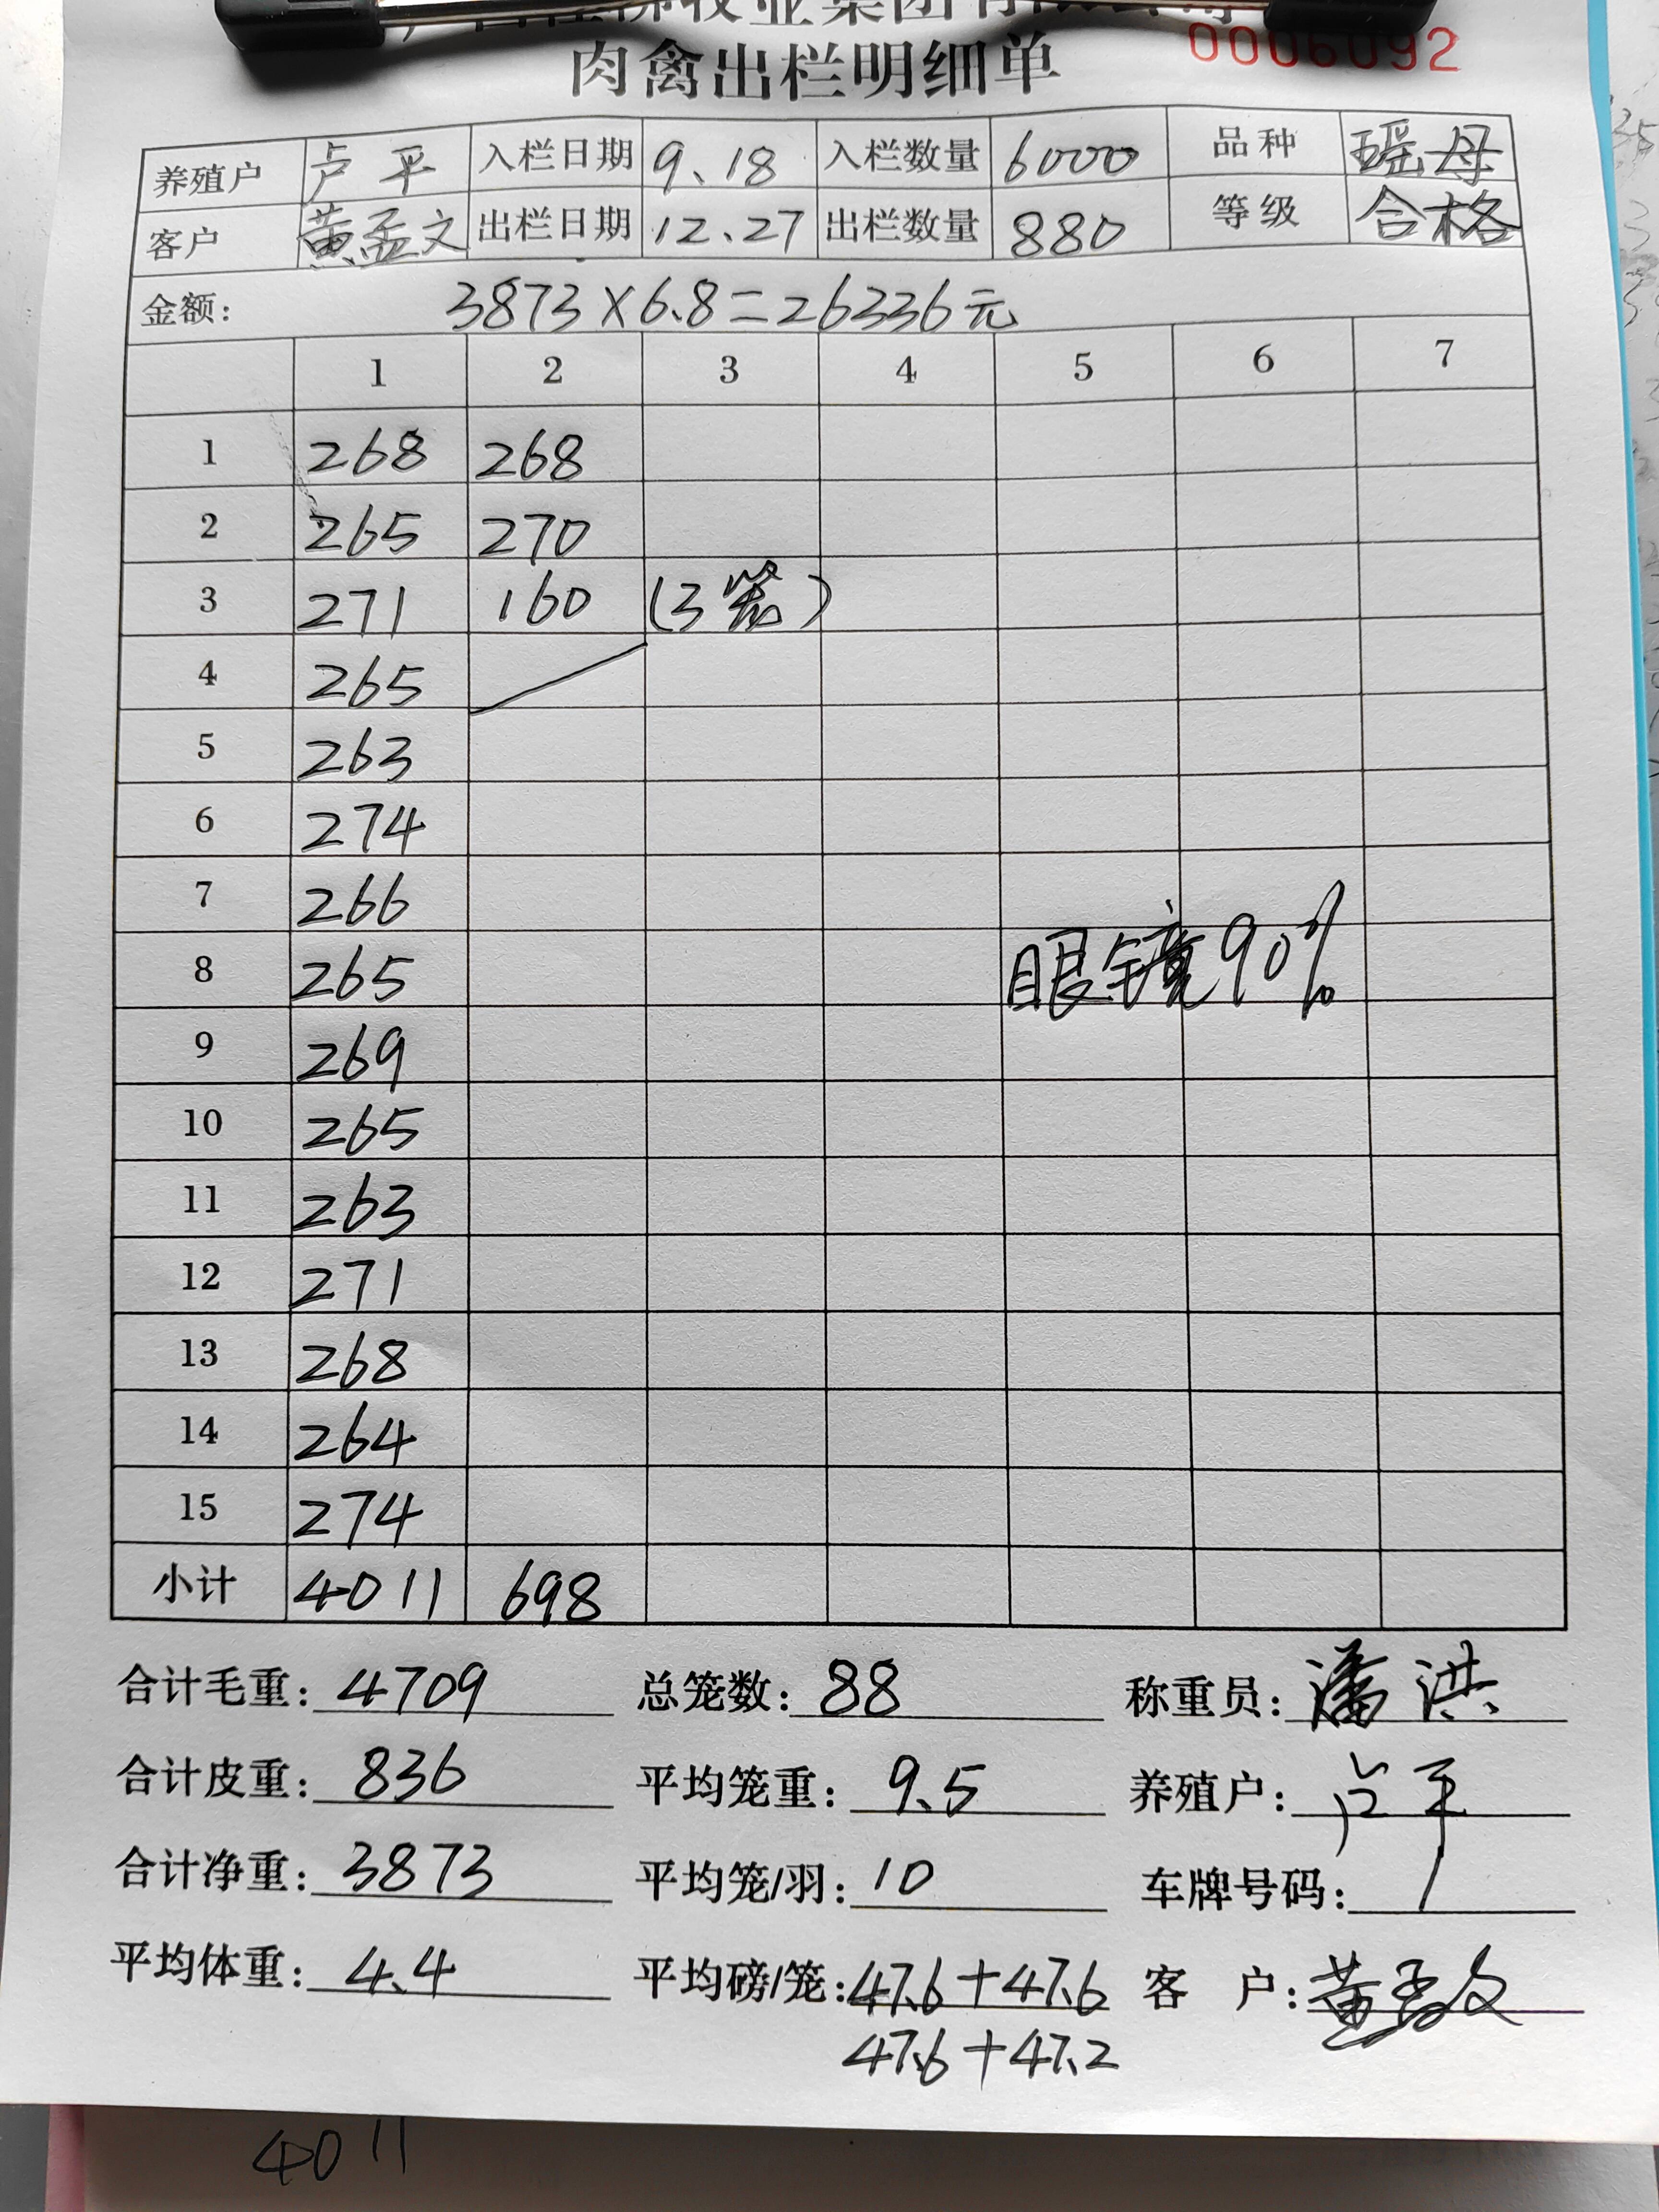 牧业集团有限公司
肉禽出栏明细单 0006092
养殖户 卢平 入栏日期 9.18 入栏数量 6000 品种 瑶母
客户 黄孟文 出栏日期 12.27 出栏数量 880 等级 合格
金额: 3873×6.8=26336元
1 2 3 4 5 6 7
1 268 268
2 265 270
3 271 160 (3笼)
4 265
5 263
6 274
7 266
8 265 眼镜90%
9 269
10 265
11 263
12 271
13 268
14 264
15 274
小计 4011 698
合计毛重: 4709 总笼数: 88 称重员: 潘洪
合计皮重: 836 平均笼重: 9.5 养殖户: 卢平
合计净重: 3873 平均笼/羽: 10 车牌号码:
平均体重: 4.4 平均磅/笼: 47.6+47.6 客户: 黄孟文
47.6+47.2
4011